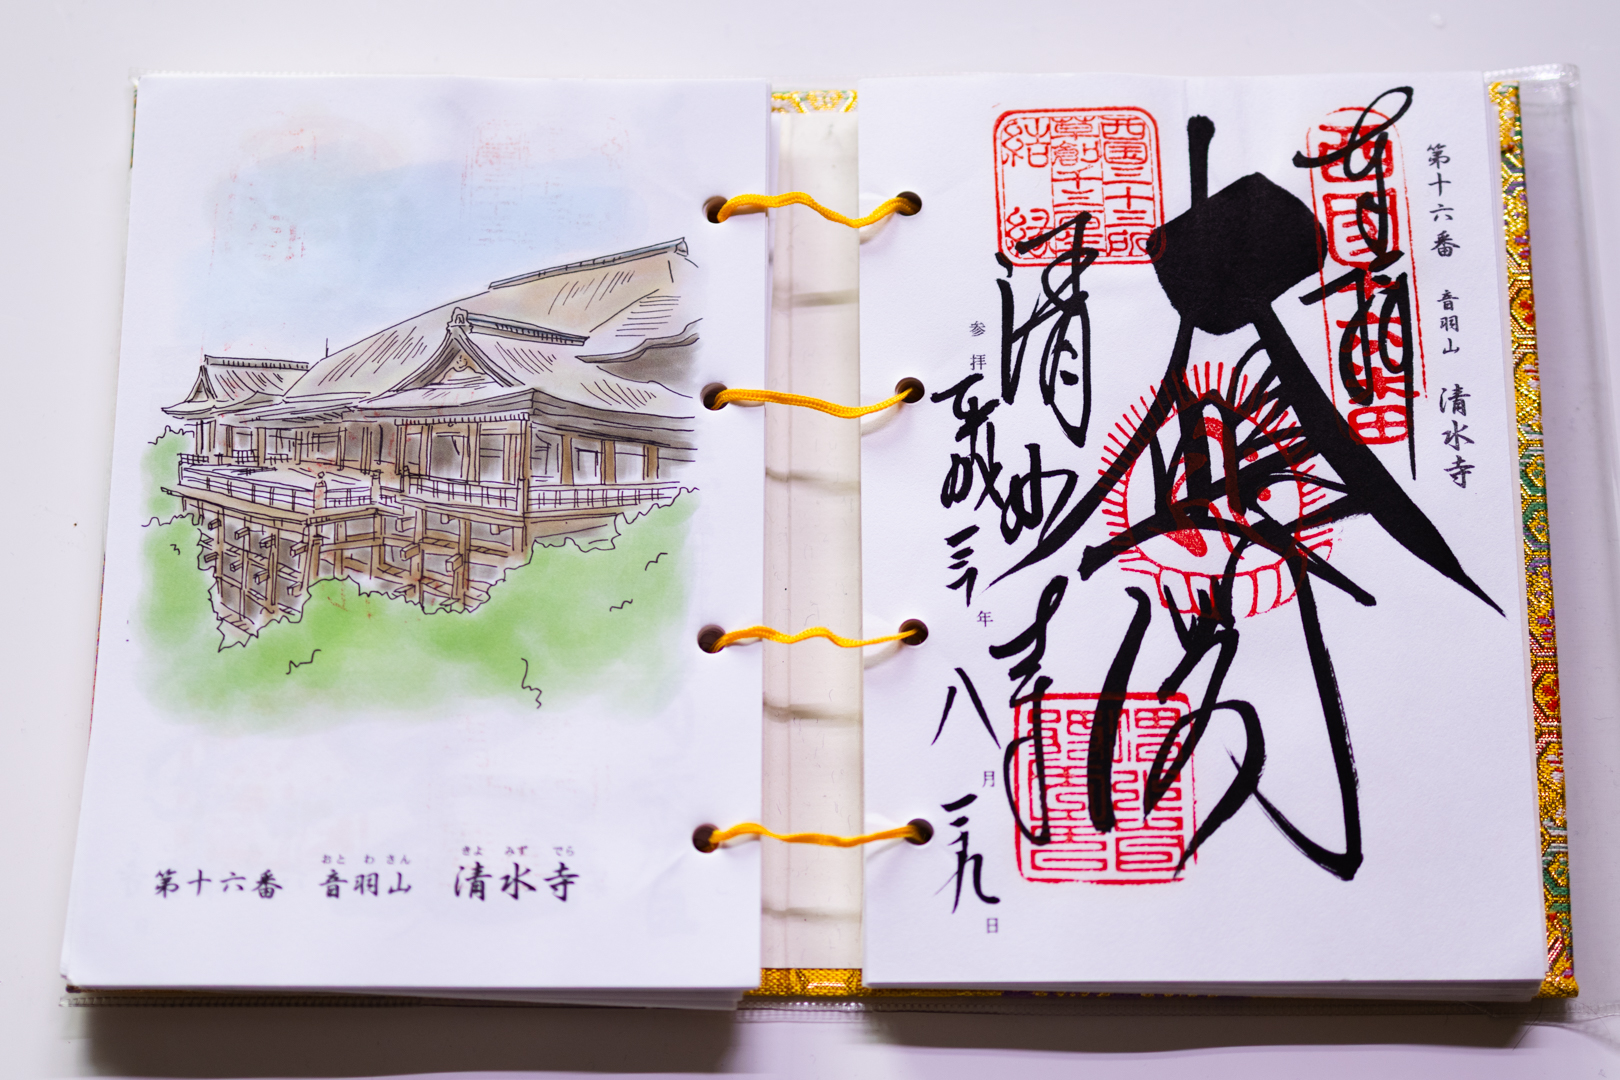 おと わ さん きよ みず でら
第十六番 音羽山 清水寺
第十六番 音羽山 清水寺
奉拝
西国十六番
大悲閣
西国三十三所
草創千三百年
結縁
清水寺
参拝 平成三十年八月二十九日